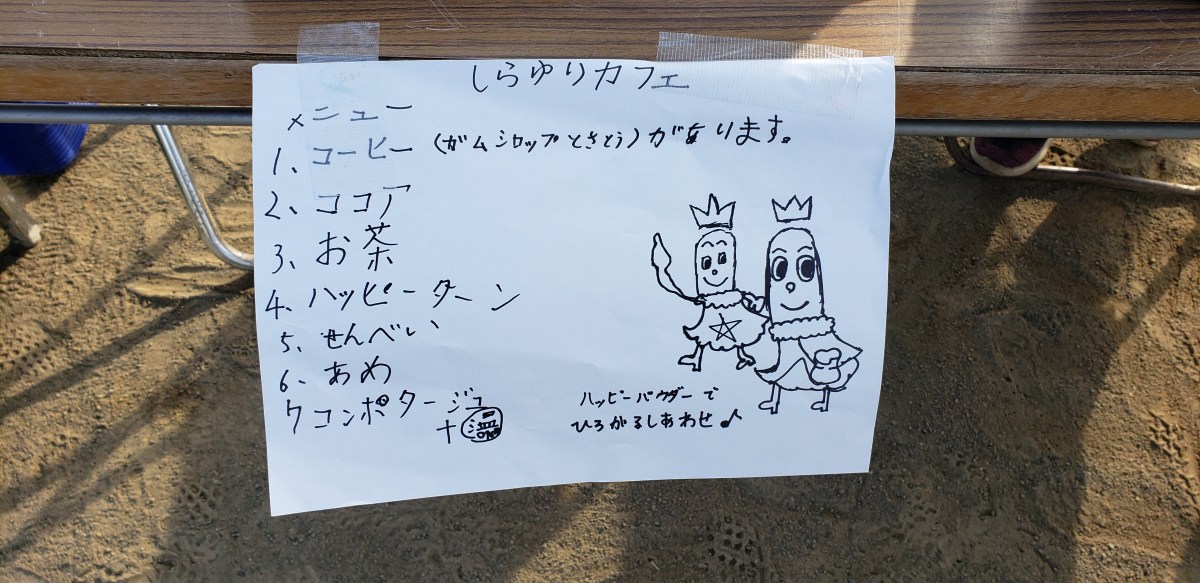 しらゆりカフェ
メニュー
1、コーヒー (ガムシロップとさとう)があります。
2、ココア
3、お茶
4、ハッピーターン
5、せんべい
6、あめ
7コンポタージュ
+温
ハッピーパウダーで
ひろがるしあわせ♪